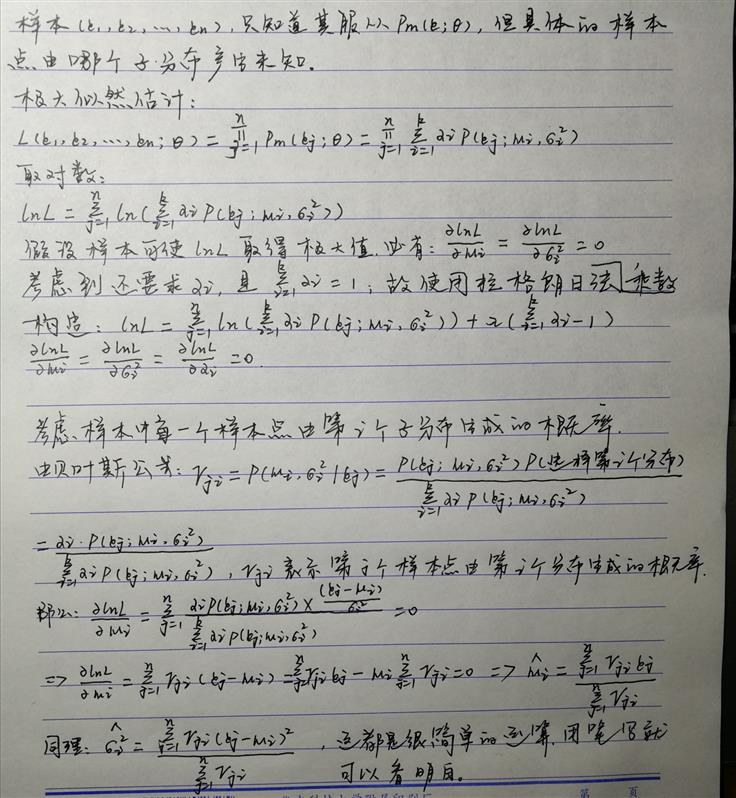 样本(x₁,x₂,…,xₙ),只知道其服从Pm(x;θ),但具体的样本
点由哪个子分布产生未知。
极大似然估计:
L(x₁,x₂,…,xₙ;θ) = ∏ⱼ₌₁ⁿ Pm(xⱼ;θ) = ∏ⱼ₌₁ⁿ ∑ᵢ₌₁ᵏ αᵢ P(xⱼ;μᵢ,σᵢ²)
取对数:
lnL = ∑ⱼ₌₁ⁿ ln(∑ᵢ₌₁ᵏ αᵢ P(xⱼ;μᵢ,σᵢ²))
假设样本可使lnL取得极大值,必有: ∂lnL/∂μᵢ = ∂lnL/∂σᵢ² = 0
考虑到还要求αᵢ,且 ∑ᵢ₌₁ᵏ αᵢ = 1,故使用拉格朗日法乘数
构造: lnL = ∑ⱼ₌₁ⁿ ln(∑ᵢ₌₁ᵏ αᵢ P(xⱼ;μᵢ,σᵢ²)) + λ(∑ᵢ₌₁ᵏ αᵢ-1)
∂lnL/∂μᵢ = ∂lnL/∂σᵢ² = ∂lnL/∂αᵢ = 0.
考虑样本中每一个样本点由第i个子分布生成的概率.
由贝叶斯公式: γⱼᵢ = P(μᵢ,σᵢ²|xⱼ) = P(xⱼ;μᵢ,σᵢ²)P(选择第i个分布) / ∑ᵢ₌₁ᵏ αᵢ P(xⱼ;μᵢ,σᵢ²)
= αᵢ·P(xⱼ;μᵢ,σᵢ²) / ∑ᵢ₌₁ᵏ αᵢ P(xⱼ;μᵢ,σᵢ²) , γⱼᵢ表示第j个样本点由第i个分布生成的概率.
那么: ∂lnL/∂μᵢ = ∑ⱼ₌₁ⁿ αᵢ P(xⱼ;μᵢ,σᵢ²) × (xⱼ-μᵢ)/σᵢ² / ∑ᵢ₌₁ᵏ αᵢ P(xⱼ;μᵢ,σᵢ²) = 0
=> ∂lnL/∂μᵢ = ∑ⱼ₌₁ⁿ γⱼᵢ(xⱼ-μᵢ) = ∑ⱼ₌₁ⁿ γⱼᵢ xⱼ - μᵢ ∑ⱼ₌₁ⁿ γⱼᵢ = 0 => μ̂ᵢ = ∑ⱼ₌₁ⁿ γⱼᵢ xⱼ / ∑ⱼ₌₁ⁿ γⱼᵢ
同理: σ̂ᵢ² = ∑ⱼ₌₁ⁿ γⱼᵢ(xⱼ-μᵢ)² / ∑ⱼ₌₁ⁿ γⱼᵢ ,这都是很简单的运算,用笔写就
可以看明白。
第 页